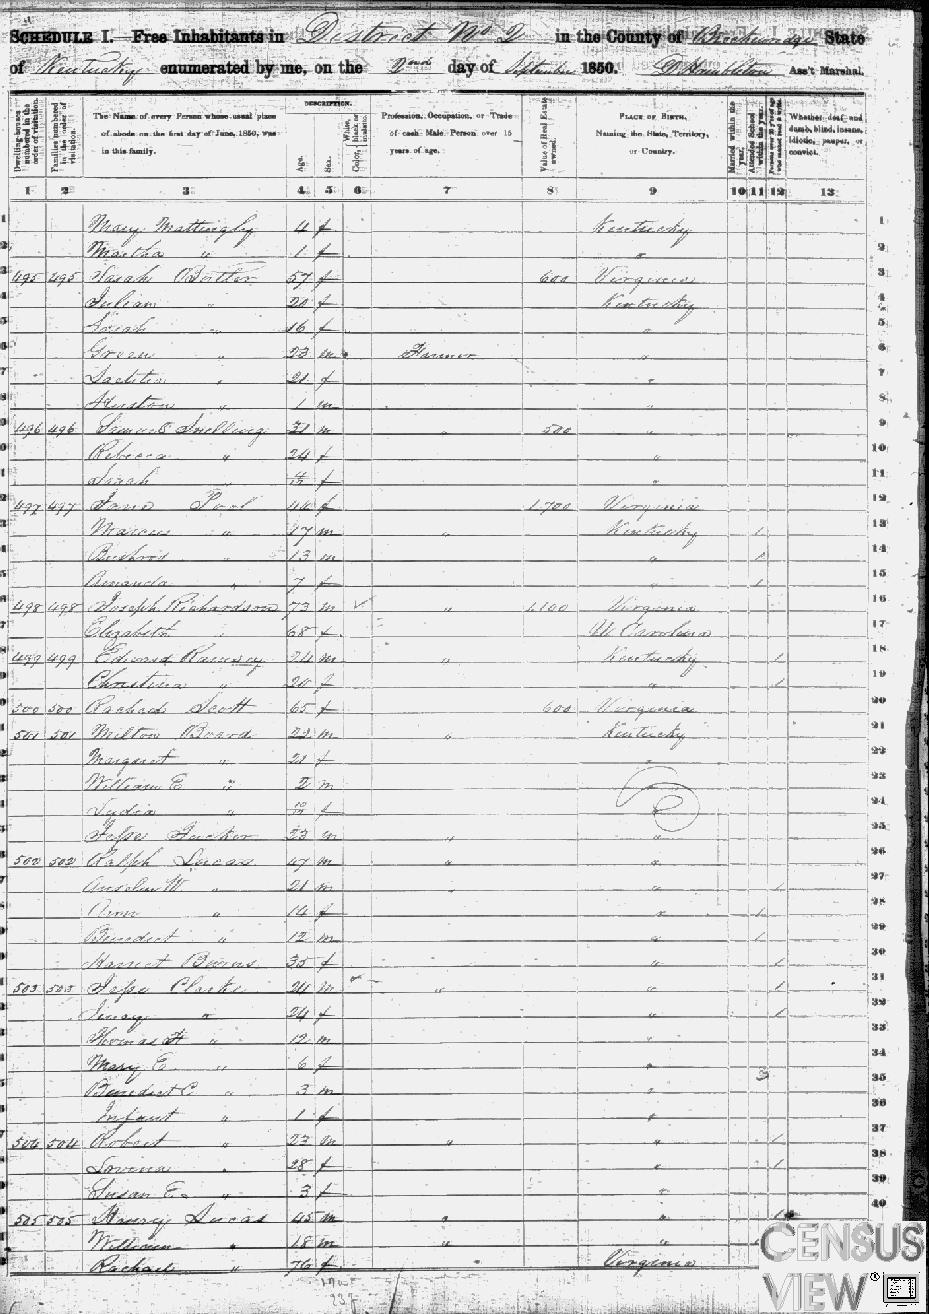 SCHEDULE I.—Free Inhabitants in District No 2 in the County of Breckenridge State
of Kentucky enumerated by me, on the 2nd day of September 1850. Ass't Marshal.
DESCRIPTION.
Dwelling-houses numbered in the order of visitation.
Families numbered in the order of visitation.
The Name of every Person whose usual place of abode on the first day of June, 1850, was in this family.
Age.
Sex.
White, black or mulatto. Color,
Profession, Occupation, or Trade of each Male Person over 15 years of age.
Value of Real Estate owned.
PLACE OF BIRTH. Naming the State, Territory, or Country.
Married within the year.
Attended School within the year.
Whether deaf and dumb, blind, insane, idiotic, pauper, or convict.
1 2 3 4 5 6 7 8 9 10 11 12 13
1 Mary Mattingly 4 f Kentucky 1
2 Martha " 1 f " 2
3 495 495 Sarah Butler 57 f 600 Virginia 3
4 Julian " 20 f Kentucky 4
5 " 16 f " 5
6 Green " 23 m Farmer " 6
7 " 21 f " 7
8 Huston " 1 m " 8
9 496 496 Samuel Snelling 31 m " 500 " 9
10 Rebecca " 24 f " 10
11 Sarah " f " 11
12 497 497 Jane Pool 44 f 1,700 Virginia 12
13 Marcus " 17 m " Kentucky 1 13
14 Bushrod " 13 m " 1 14
15 Amanda " 7 f " 1 15
16 498 498 Joseph Richardson 73 m " 1,100 Virginia 16
17 Elizabeth " 68 f N Carolina 17
18 499 499 Edward Ramsey 24 m " Kentucky 1 18
19 Christina " 20 f " 1 19
20 500 500 Rachael Scott 65 f 600 Virginia 20
21 501 501 Milton Board 22 m " Kentucky 21
22 Margaret " 21 f " 22
23 William E " 2 m 23
24 Lydia " f " 24
25 Jesse Tucker 23 m " " 25
26 502 502 Ralph Lucas 47 m " " 26
27 Anselm W " 21 m " " 1 27
28 Ann " 14 f " 1 28
29 Benedict " 12 m " 1 29
30 Harriet Burns 35 f " 1 30
31 503 503 Jesse Clarke 24 m " " 1 31
32 " 24 f " 1 32
33 Thomas H " 12 m " 33
34 Mary E " 6 f " 34
35 Benedict C " 3 m " 3 35
36 Infant " 1 f " 36
37 504 504 Robert " 23 m " " 1 37
38 Lovina " 28 f " 1 38
39 Susan E " 3 f " 39
40 505 505 Henry Lucas 45 m " " 1 40
William " 18 m " "
Rachael " 76 f Virginia
CENSUS
VIEW®